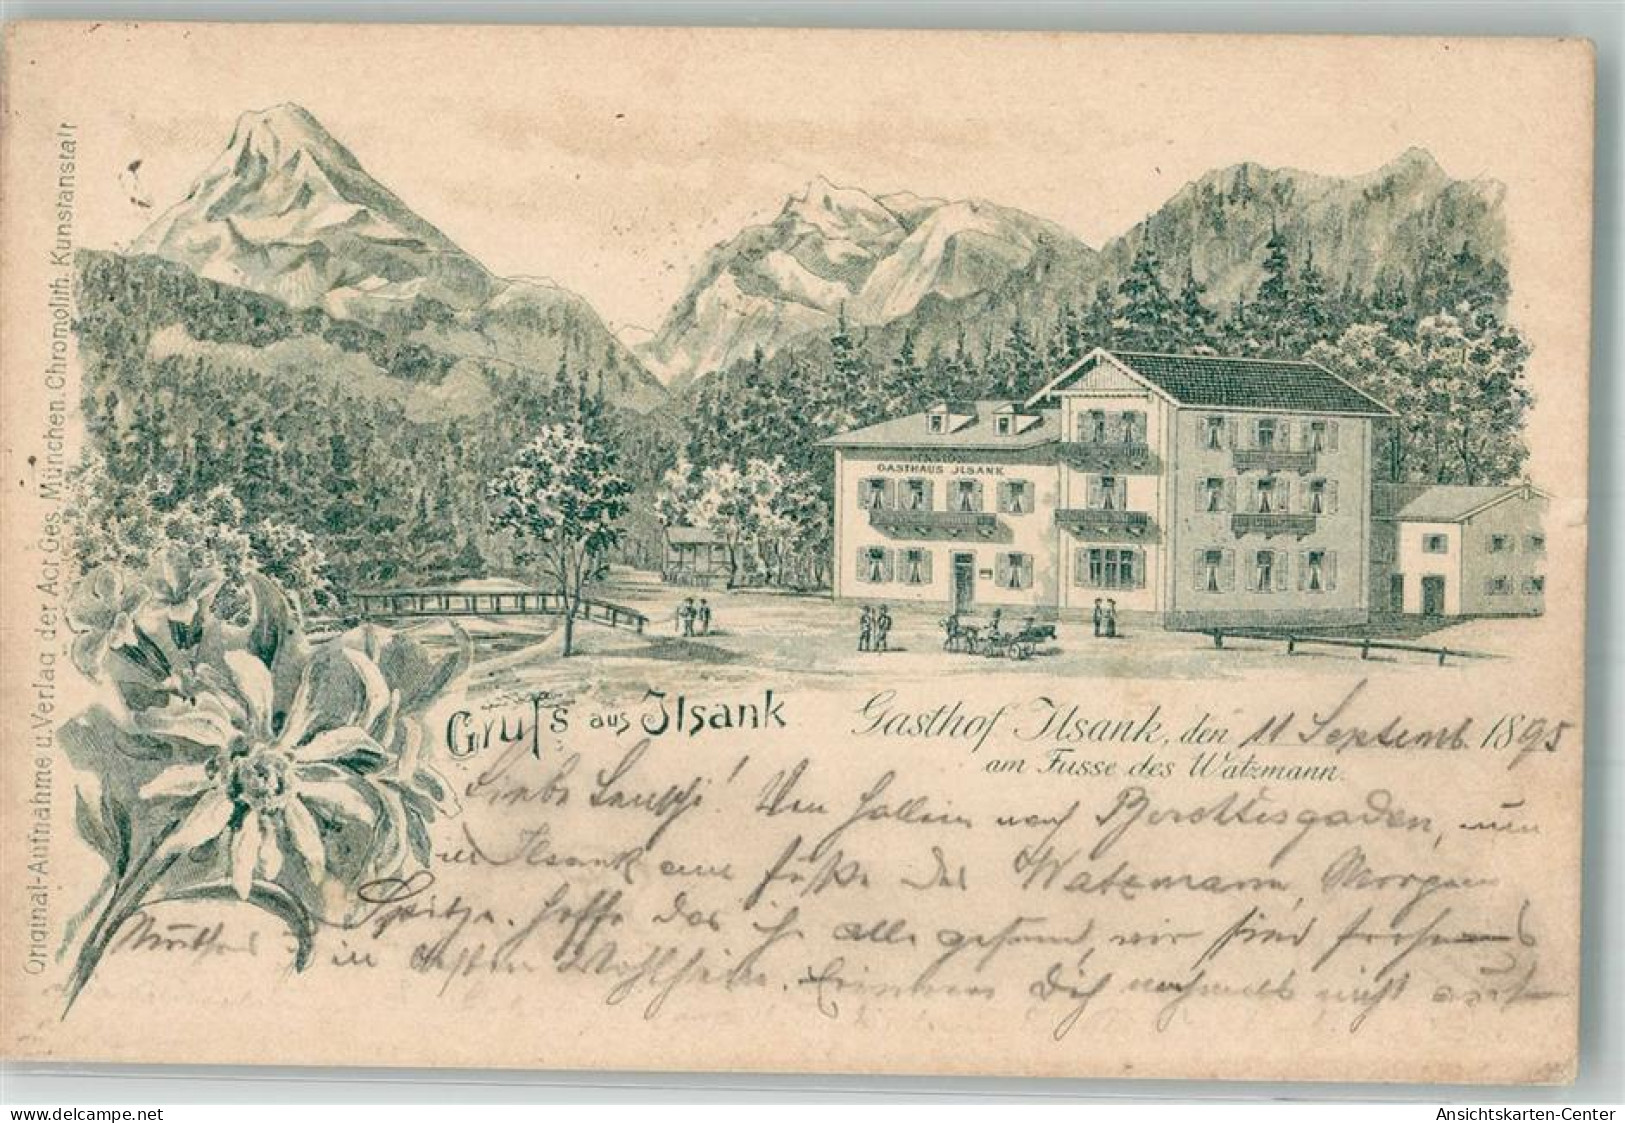 Original-Aufnahme u. Verlag der Act. Ges. München. Chromolith. Kunstanstalt
PENSION
GASTHAUS JLSANK
Gruß aus Jlsank
Gasthof Jlsank, den 11 Septemb. 1895
am Fusse des Watzmann.
Liebe ! Von Hallein nach Berchtesgaden, nun
in Ilsank am Fuße des Watzmann, Morgen
Spitze. Hoffe das ihr alle gesund, wir sind
Mutter in Wohlsein. Dich nochmals nicht
delcampe.net
Ansichtskarten-Center